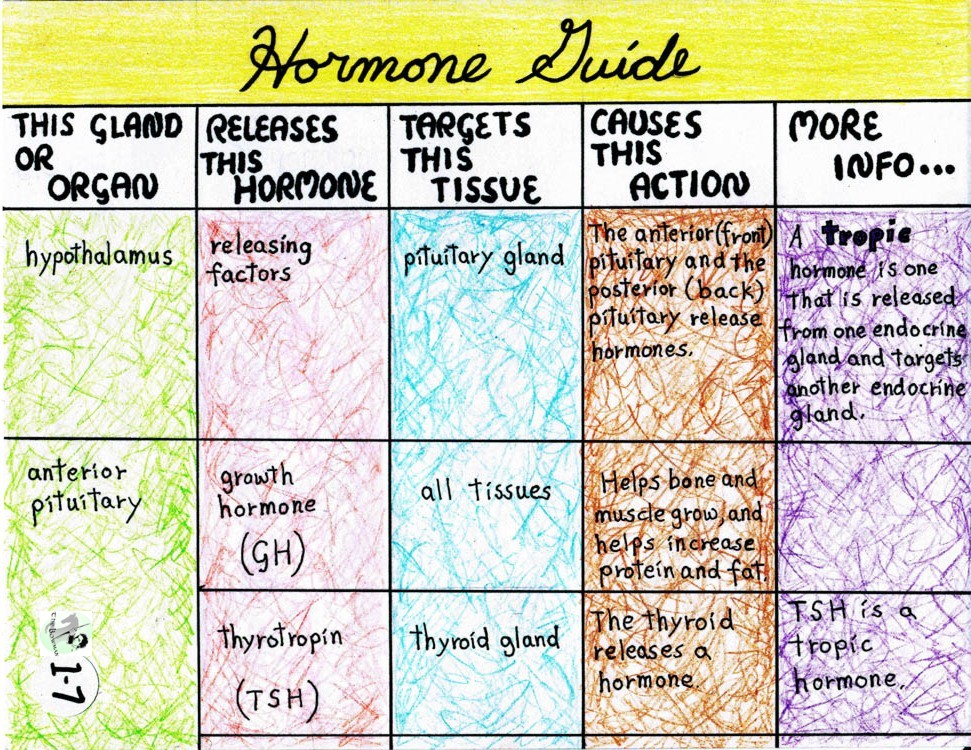 Hormone Guide
THIS GLAND
OR
ORGAN
RELEASES
THIS
HORMONE
TARGETS
THIS
TISSUE
CAUSES
THIS
ACTION
MORE
INFO...
hypothalamus
releasing
factors
pituitary gland
The anterior (front)
pituitary and the
posterior (back)
pituitary release
hormones.
A tropic
hormone is one
that is released
from one endocrine
gland and targets
another endocrine
gland.
anterior
pituitary
growth
hormone
(GH)
all tissues
Helps bone and
muscle grow, and
helps increase
protein and fat.
thyrotropin
(TSH)
thyroid gland
The thyroid
releases a
hormone.
TSH is a
tropic
hormone.
1-7